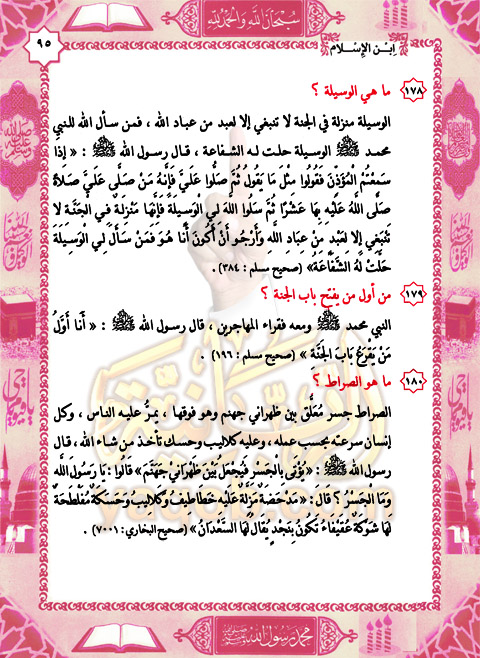 سبحان الله والحمد لله
٩٥
ابن الإسلام
١٧٨ ما هي الوسيلة ؟
الوسيلة منزلة في الجنة لا تنبغي إلا لعبد من عباد الله ، فمن سأل الله للنبي
محمد ﷺ الوسيلة حلت له الشفاعة ، قال رسول الله ﷺ : « إِذَا
سَمِعْتُمُ الْمُؤَذِّنَ فَقُولُوا مِثْلَ مَا يَقُولُ ثُمَّ صَلُّوا عَلَيَّ فَإِنَّهُ مَنْ صَلَّى عَلَيَّ صَلَاةً
صَلَّى اللَّهُ عَلَيْهِ بِهَا عَشْرًا ثُمَّ سَلُوا اللَّهَ لِي الْوَسِيلَةَ فَإِنَّهَا مَنْزِلَةٌ فِي الْجَنَّةِ لَا
تَنْبَغِي إِلَّا لِعَبْدٍ مِنْ عِبَادِ اللَّهِ وَأَرْجُو أَنْ أَكُونَ أَنَا هُوَ فَمَنْ سَأَلَ لِي الْوَسِيلَةَ
حَلَّتْ لَهُ الشَّفَاعَةُ» (صحيح مسلم : ٣٨٤) .
١٧٩ من أول من يفتح باب الجنة ؟
النبي محمد ﷺ ومعه فقراء المهاجرين ، قال رسول الله ﷺ : « أَنَا أَوَّلُ
مَنْ يَقْرَعُ بَابَ الْجَنَّةِ » (صحيح مسلم : ١٩٦) .
١٨٠ ما هو الصراط ؟
الصراط جسر مُعَلَّق بين ظهراني جهنم وهو فوقها ، يمرُّ عليه الناس ، وكل
إنسان سرعته بحسب عمله ، وعليه كلاليب وحسك تأخذ من شاء الله ، قال
رسول الله ﷺ : «يُؤْتَى بِالْجَسْرِ فَيُجْعَلُ بَيْنَ ظَهْرَانَيْ جَهَنَّمَ» قَالُوا : يَا رَسُولَ اللَّهِ
وَمَا الْجَسْرُ ؟ قَالَ : «مَدْحَضَةٌ مَزِلَّةٌ عَلَيْهِ خَطَاطِيفُ وَكَلَالِيبُ وَحَسَكَةٌ مُفَلْطَحَةٌ
لَهَا شَوْكَةٌ عُقَيْفَاءُ تَكُونُ بِنَجْدٍ يُقَالُ لَهَا السَّعْدَانُ» (صحيح البخاري : ٧٠٠١) .
محمد رسول الله ﷺ